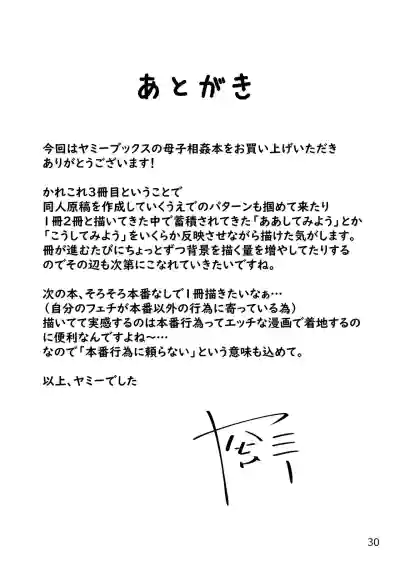 あとがき
今回はヤミーブックスの母子相姦本をお買い上げいただき
ありがとうございます!
かれこれ3冊目ということで
同人原稿を作成していくうえでのパターンも掴めて来たり
1冊2冊と描いてきた中で蓄積されてきた「ああしてみよう」とか
「こうしてみよう」をいくらか反映させながら描けた気がします。
冊が進むたびにちょっとずつ背景を描く量を増やしてたりする
のでその辺も次第にこなれていきたいですね。
次の本、そろそろ本番なしで1冊描きたいなぁ…
(自分のフェチが本番以外の行為に寄っている為)
描いてて実感するのは本番行為ってエッチな漫画で着地するの
に便利なんですよね~…
なので「本番行為に頼らない」という意味も込めて。
以上、ヤミーでした
ヤミー
30